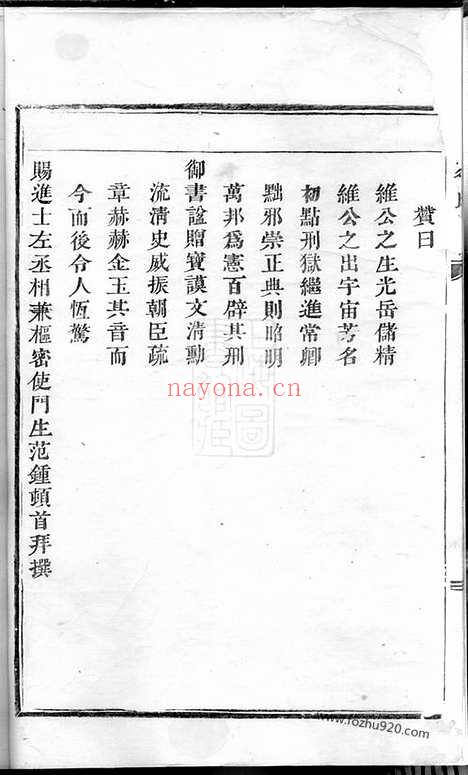 贊曰
維公之生光岳儲精
維公之出宇宙芳名
初點刑獄繼進常卿
黜邪崇正典則昭明
萬邦爲憲百辟其刑
御書諡贈寶謨文清勳
流清史威振朝臣疏
章赫赫金玉其音而
今而後令人恆驚
賜進士左丞相兼樞密使門生范鍾頓首拜撰
nayona.cn
www.fozhu920.com